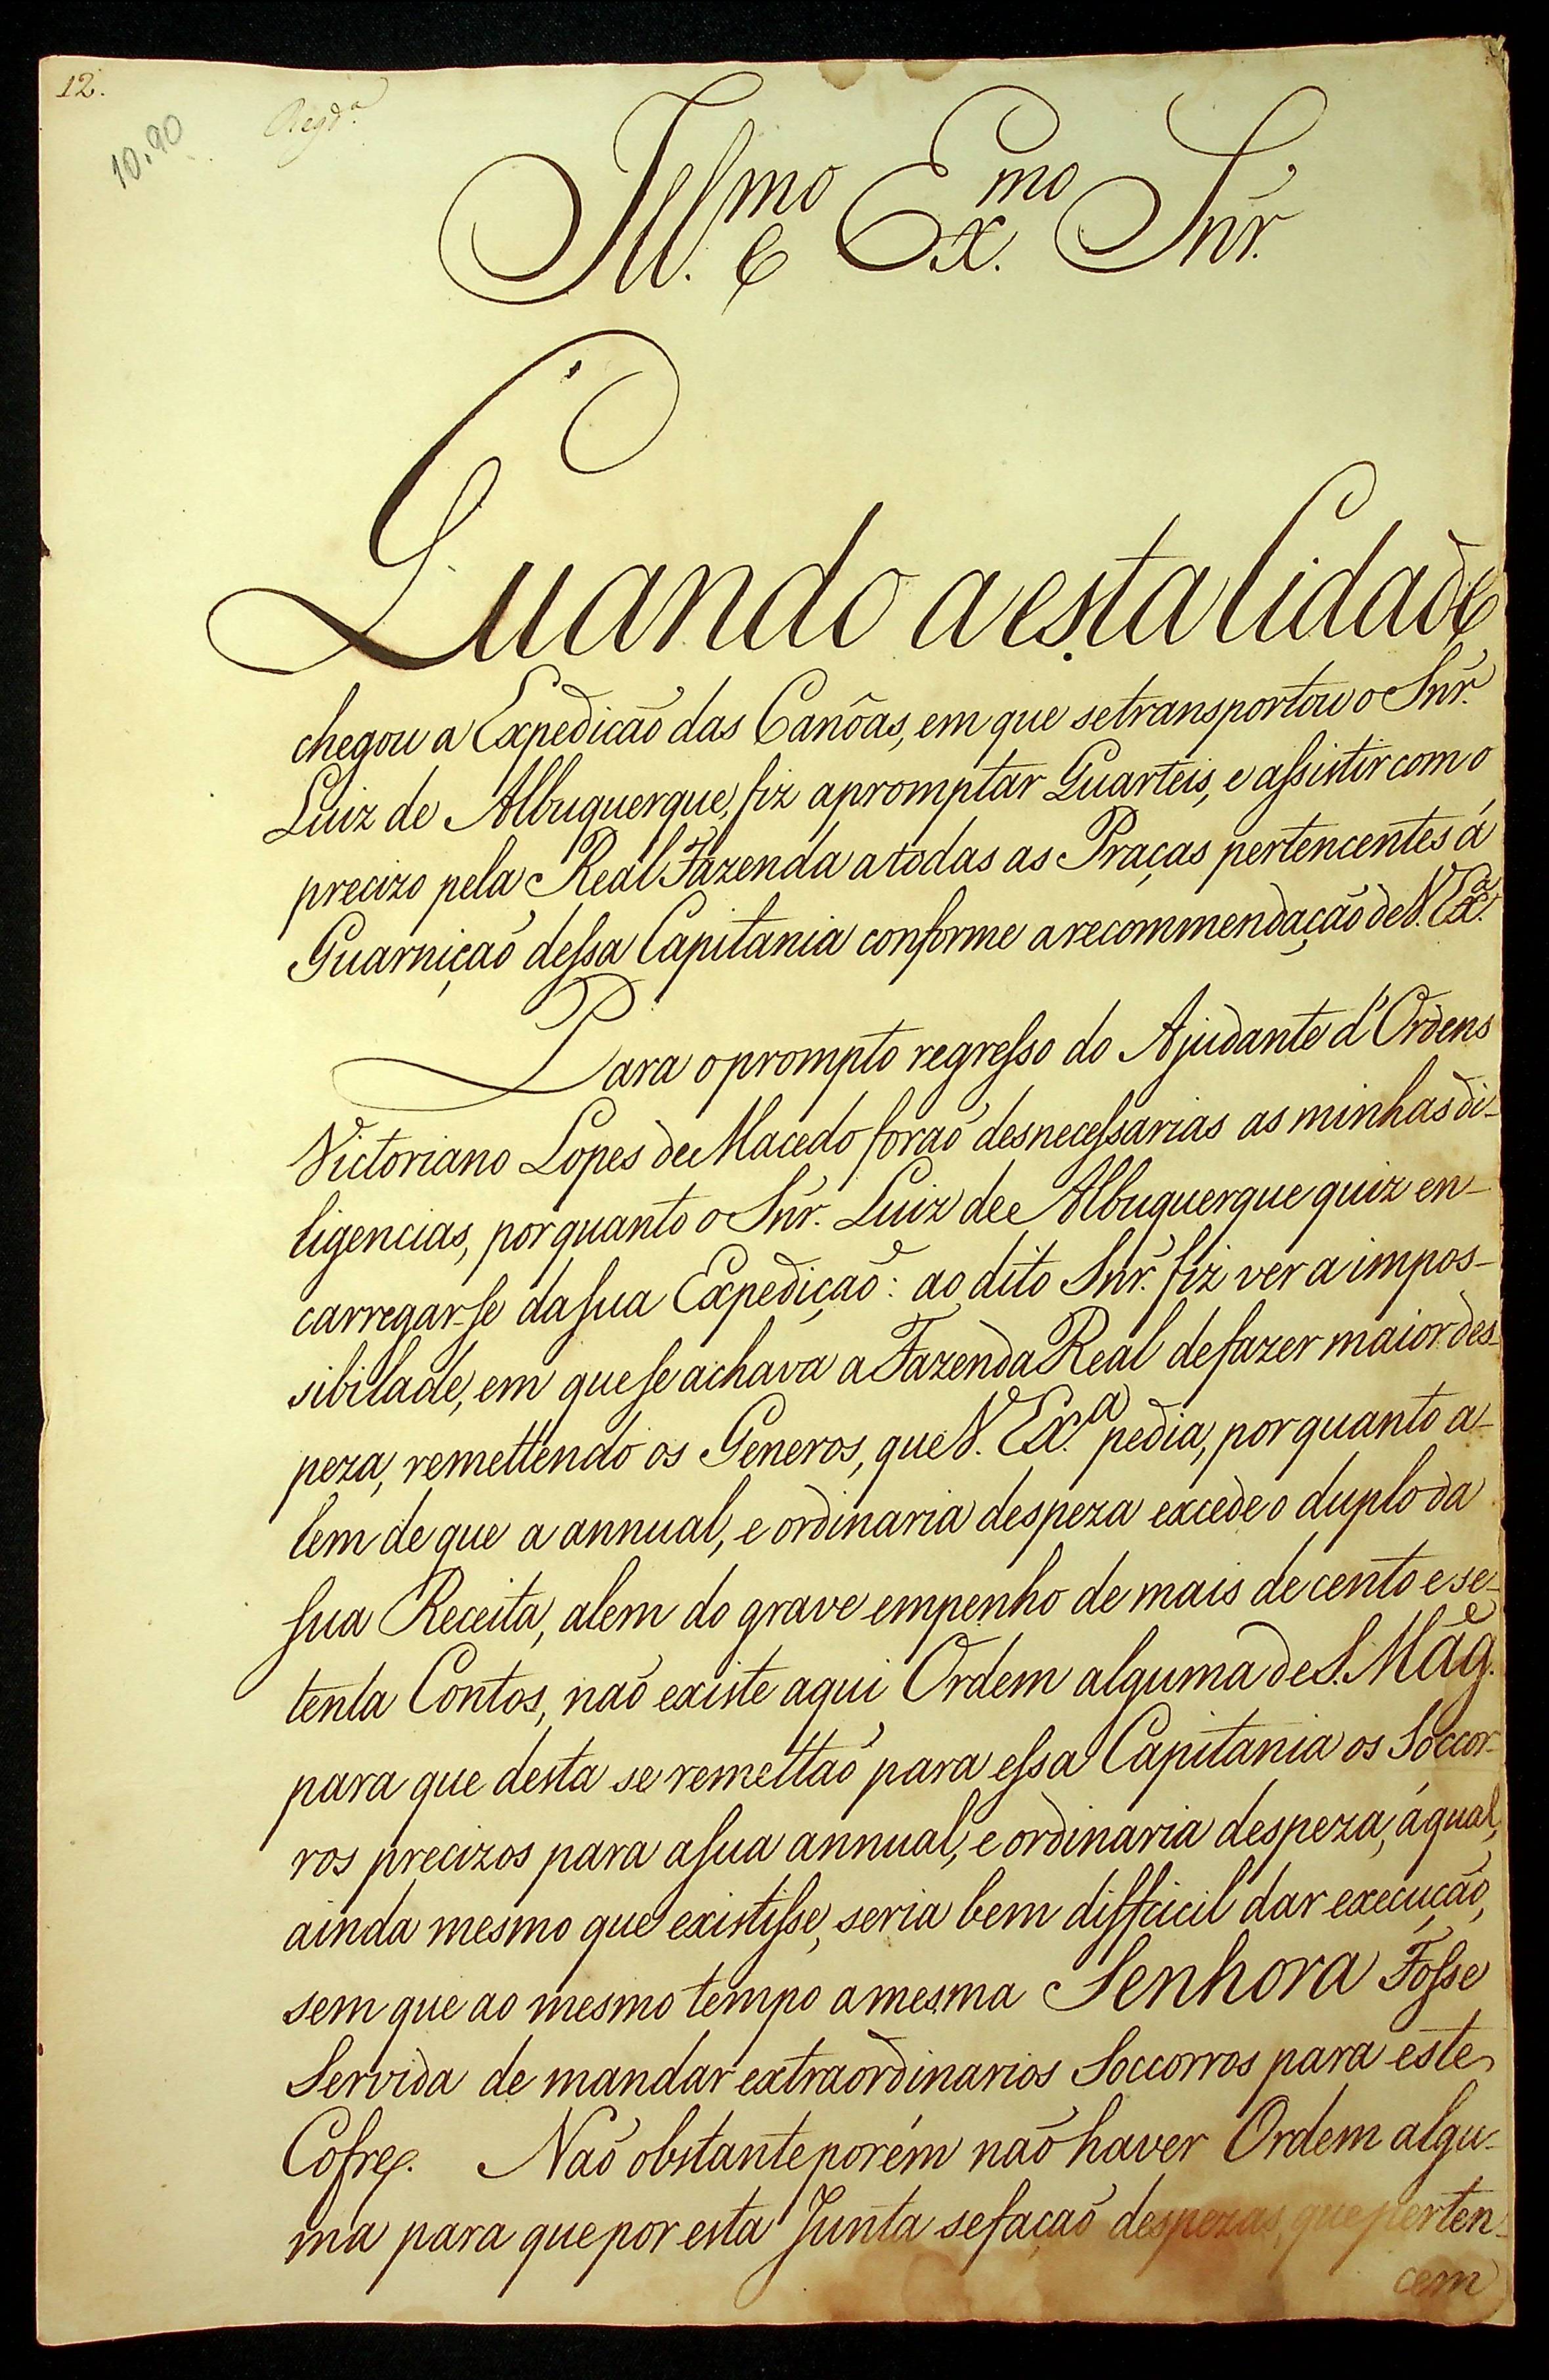 12.
10.90
Regd.ª
Ill.mo e Ex.mo Snr.
Quando a esta Cidade
chegou a Expedicaõ das Canôas, em que se transportou o Snr.
Luiz de Albuquerque, fiz apromptar Quarteis, e assistir com o
precizo pela Real Fazenda a todas as Praças pertencentes á
Guarniçaõ dessa Capitania conforme a recommendaçaõ de V. Ex.ª
Para o prompto regresso do Ajudante d'Ordens
Victoriano Lopes de Macedo foraõ desnecessarias as minhas di-
ligencias, por quanto o Snr. Luiz de Albuquerque quiz en-
carregar-se da sua Expediçaõ: ao dito Snr. fiz ver a impos-
sibilade, em que se achava a Fazenda Real de fazer maior des-
peza, remettendo os Generos, que V. Ex.ª pedia, por quanto a-
lem de que a annual, e ordinaria despeza excede o duplo da
sua Receita, alem do grave empenho de mais de cento e se-
tenta Contos, naõ existe aqui Ordem alguma de S. Mag.e
para que desta se remettaõ para essa Capitania os Soccor-
ros precizos para a sua annual, e ordinaria despeza, á qual,
ainda mesmo que existisse, seria bem diffcicil dar execuçaõ,
sem que ao mesmo tempo a mesma Senhora Fosse
Servida de mandar extraordinarios Soccorros para este
Cofre. Naõ obstante porém naõ haver Ordem algu-
ma para que por esta Junta se façaõ despezas, que perten-
cem